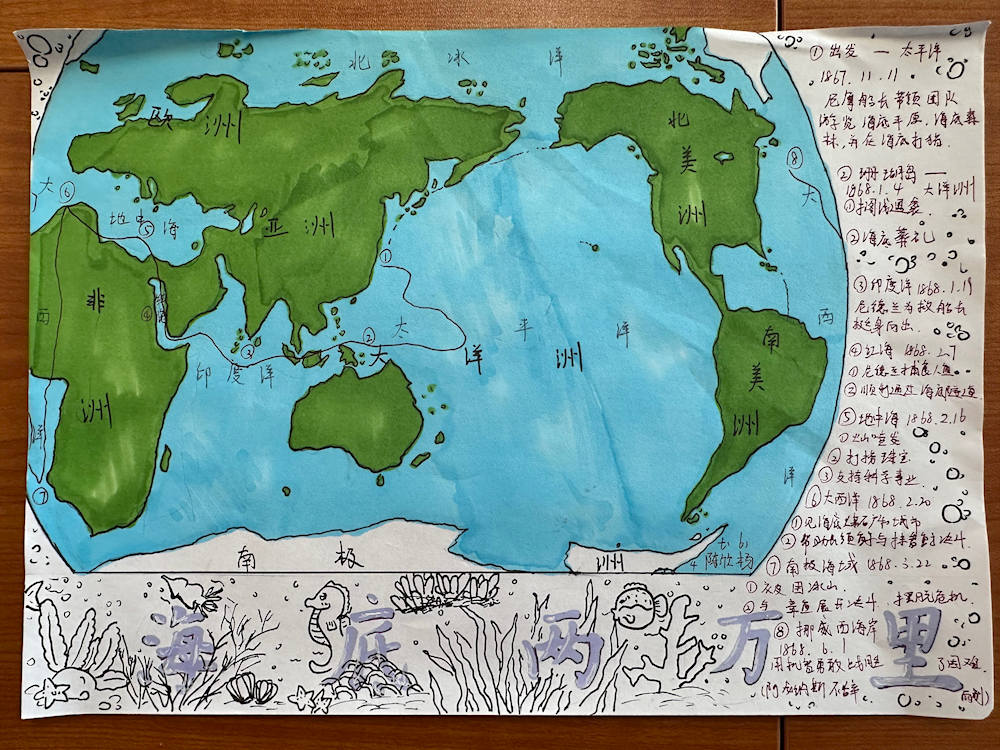 北冰洋
欧洲
亚洲
北美洲
⑧
大
⑥
大
地中海
⑤
①
非洲
④
西
③
②
大
太平洋
大洋洲
印度洋
南美洲
西
洋
洋
⑦
南极洲
七 6
4 陈欣杨
海底两万里
① 出发 — 太平洋
1867. 11. 11
尼摩船长带领团队
游览海底平原, 海底森
林, 并在海底打猎.
② 珊瑚岛 —
1868. 1. 4 大洋洲
①
②海底葬礼
③印度洋 1868. 1.
尼德兰为救船长
挺身而出.
④红海 1868. 2.7
①尼德兰捕
②顺利通过海底隧道
⑤地中海 1868. 2. 16
①火山喷发
②打捞珠宝
③支持科学事业.
⑥大西洋 1868. 2. 20
①见海底
②决斗.
⑦南极海域 1868. 3. 22
①冰山.
②与章鱼展开决斗. 危机
⑧ 挪威西海岸
1868. 6. 1
用机智勇敢战胜了困难.